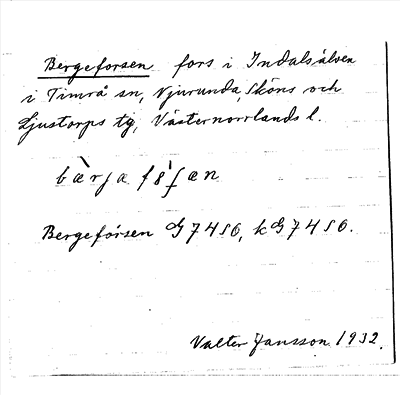 Bergeforsen fors i Indalsälven
i Timrå sn, Njurunda, Sköns och
Ljustorps tg, Västernorrlands l.
Bergeforsen G 7456, kG 7456.
Valter Jansson 1932.